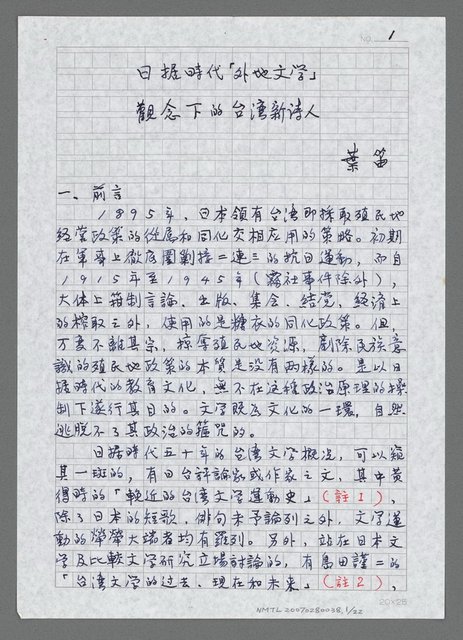 NO. 1
日据時代「外地文学」
觀念下的台湾新詩人
葉笛
一、前言
1895年，日本領有台湾即採取殖民地
経営政策的從屬和同化交相应用的策略。初期
在軍事上徹底圍剿接二連三的抗日運動，而自
1915年至1945年（霧社事件除外），
大体上箝制言論、出版、集会、結党，経済上
的榨取之外，使用的是糖衣的同化政策。但，
万变不離其宗，掠奪殖民地资源，剷除民族意
識的殖民地政策的本質是没有两樣的。是以日
据時代的教育文化，無不在这種政治原理的操
制下遂行其目的。文学既為文化的一環，自然
逃脱不了其政治的箍咒的。
日据時代五十年的台湾文学概況，可以窺
其一斑的，有日台評論家或作家之文，其中黄
得時的「輓近的台湾文学運動史」（註1），
除了日本的短歌、俳句未予論列之外，文学運
動的犖犖大端者均有羅列。另外，站在日本文
学及比較文学研究立場討論的，有島田謹二的
「台湾文学的过去、現在和未来」（註2），
20×25
NMTL20070280038,1/22